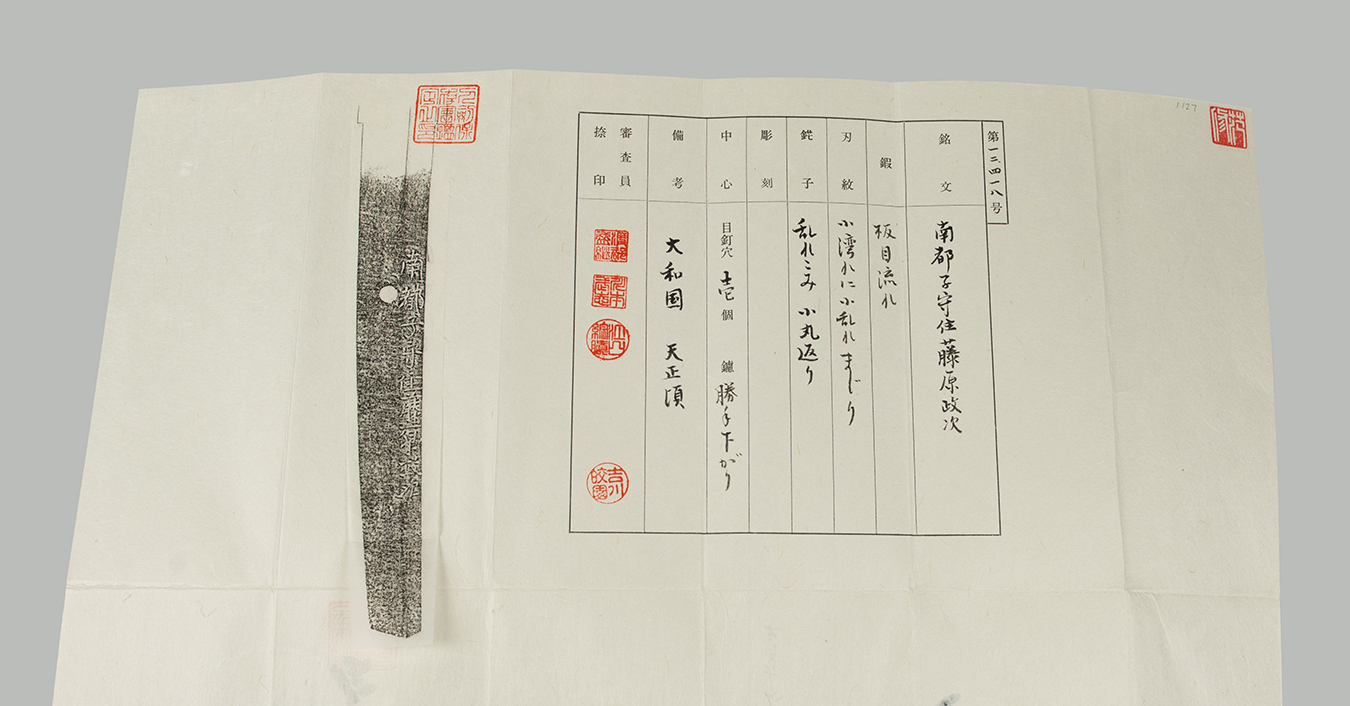 1127
第一二四一八号
銘文
南都子守住藤原政次
鍜
板目流れ
刃紋
小湾れに小乱れまじり
鋩子
乱れこみ 小丸返り
彫刻
中心
目釘穴 壱個 鑢 勝手下がり
備考
大和国 天正頃
審査員
捺印
吉川
南都子守住藤原政次